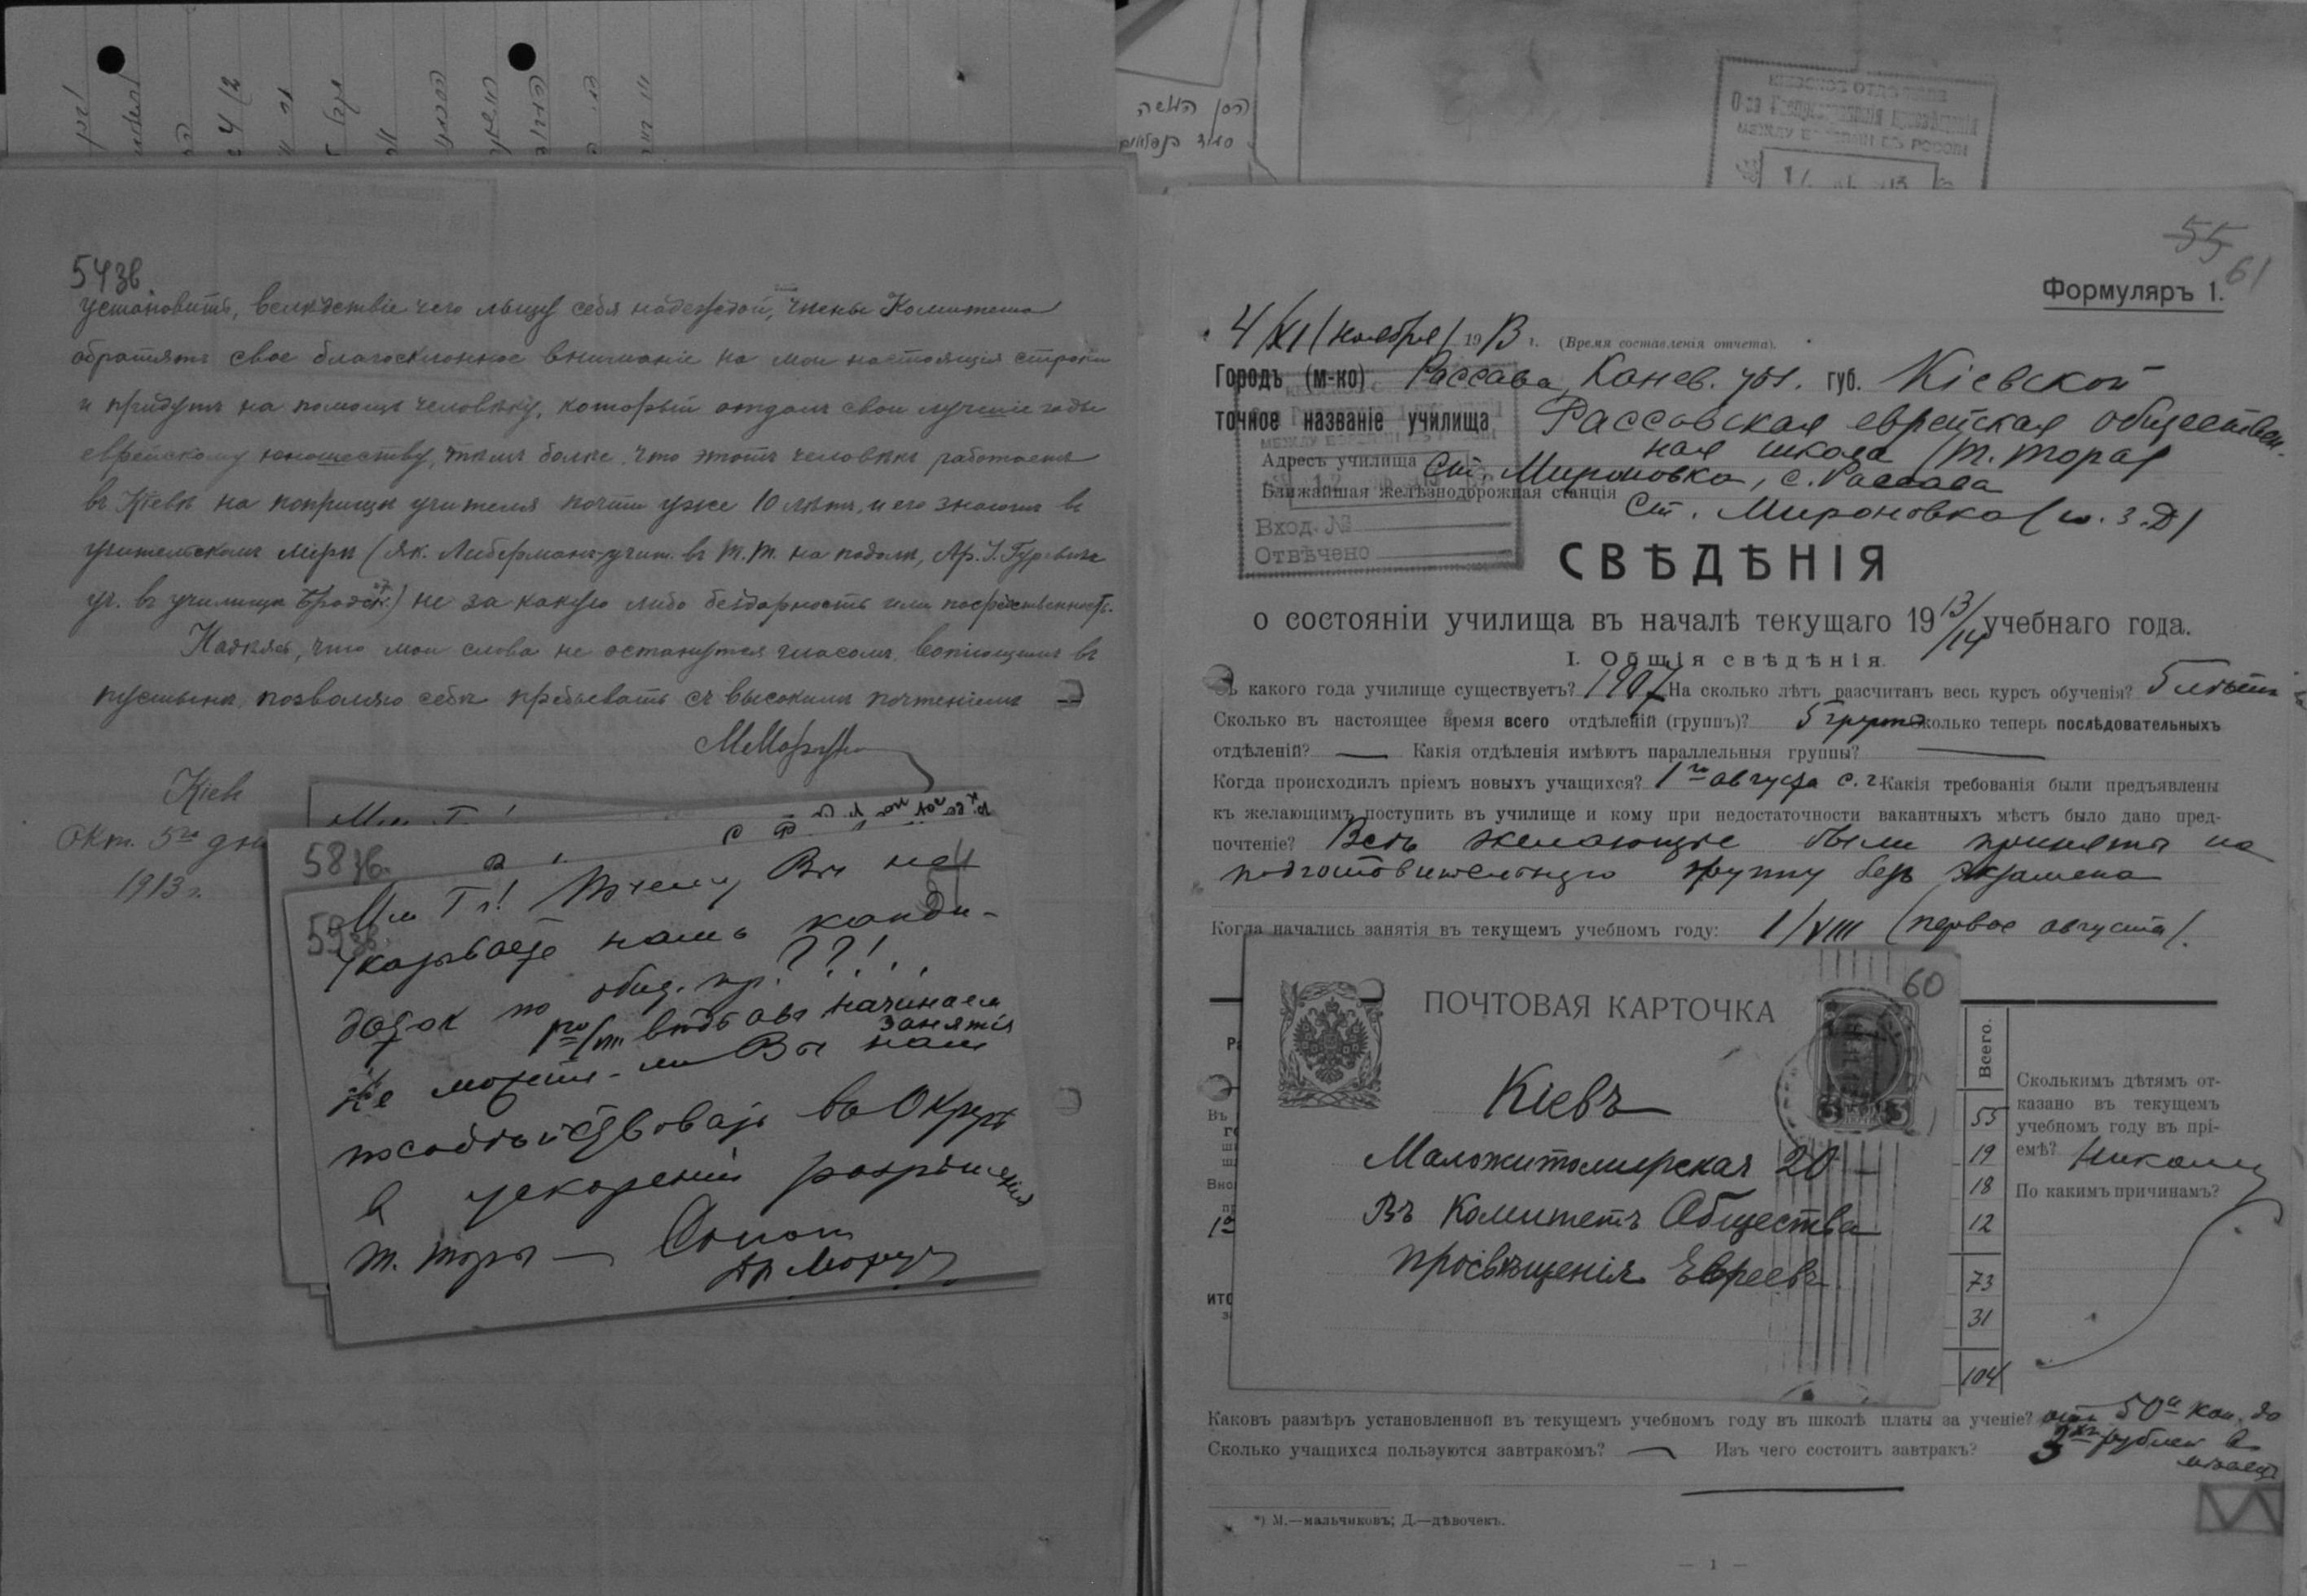 543в
установить, вслѣдствіе чего льщу себя надеждой, члены Комитета
обратятъ свое благосклонное вниманіе на мои настоящія строки
и прийдутъ на помощь человѣку, который отдалъ свои лучшіе годы
еврейскому юношеству, тѣмъ болѣе, что этотъ человѣкъ работаетъ
въ Кіевѣ на поприщѣ учителя почти уже 10 лѣтъ, и его знаютъ въ
учительскомъ мірѣ (Як. Либерманъ-учит. въ Т.Т. на подолѣ, Ар. І. Гуревичъ
уч. въ училищѣ Бродск.) не за какую либо бездарность или посредственность.
Надѣясь, что мои слова не останутся гласомъ вопіющимъ въ
пустынѣ, позволяю себѣ пребывать съ высокимъ почтеніемъ
Кіевъ
Окт. 5го дня
1913 г.
58
59
Мм Гг! Почему Вы не
указываете намъ канди-
датокъ по общ. пр.??!
1го/VIII вѣдь
занятія
Не можете-ли Вы намъ
посодѣйствовать въ Округѣ
въ ускореніи разрѣшенія
Т. Торы —
הסן
КІЕВСКОЕ ОТДѢЛЕНІЕ
О-ва Распространенія просвѣщенія
МЕЖДУ ЕВРЕЯМИ ВЪ РОССІИ
55
61
Формуляръ 1.
4/XI (ноября) 1913 г. (Время составленія отчета).
Городъ (м-ко) Рассава, Канев. уѣз. губ. Кіевской
точное названіе училища Рассавская еврейская обществен-
ная школа (Т. Тора)
Адресъ училища Ст. Мироновка, с. Рассава
Ближайшая желѣзнодорожная станція Ст. Мироновка (ю. з. д)
Вход. №
Отвѣчено
СВѢДѢНІЯ
о состояніи училища въ началѣ текущаго 1913/14 учебнаго года.
I. Общія свѣдѣнія.
Съ какого года училище существуетъ? 1907 На сколько лѣтъ разсчитанъ весь курсъ обученія? 5 лѣтъ
Сколько въ настоящее время всего отдѣленій (группъ)? 5 группъ Сколько теперь послѣдовательныхъ
отдѣленій? — Какія отдѣленія имѣютъ параллельныя группы? —
Когда происходилъ пріемъ новыхъ учащихся? 1го августа с. г. Какія требованія были предъявлены
къ желающимъ поступить въ училище и кому при недостаточности вакантныхъ мѣстъ было дано пред-
почтеніе? Всѣ желающіе были приняты на
подготовительную группу безъ экзамена
Когда начались занятія въ текущемъ учебномъ году: 1/VIII (первое августа).
60
ПОЧТОВАЯ КАРТОЧКА
Кіевъ
Маложитомирская 20 —
Въ Комитетъ Общества
просвѣщенія Евреевъ
Всего.
55
19
18
12
73
31
104
Сколькимъ дѣтямъ от-
казано въ текущемъ
учебномъ году въ прі-
емѣ? Никому
По какимъ причинамъ?
Каковъ размѣръ установленной въ текущемъ учебномъ году въ школѣ платы за ученіе? отъ 50и коп. до
3хъ рублей въ
мѣсяцъ
Сколько учащихся пользуются завтракомъ? — Изъ чего состоитъ завтракъ?
*) М.—мальчиковъ; Д.—дѣвочекъ.
— 1 —